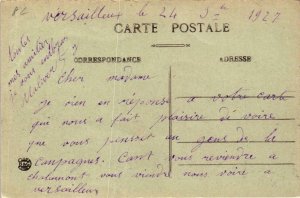 82
Versailleux le 24 1927
CARTE POSTALE
CORRESPONDANCE
ADRESSE
toutes
mes amitiés
je vous embrasse
Cher madame
je vien en réponse a votre carte
que nous a fait plaisire de voire
que vous pensait au gens de la
compagnes. Cant vous revendre a
chalamont vous viendre nous voire a
versailleux